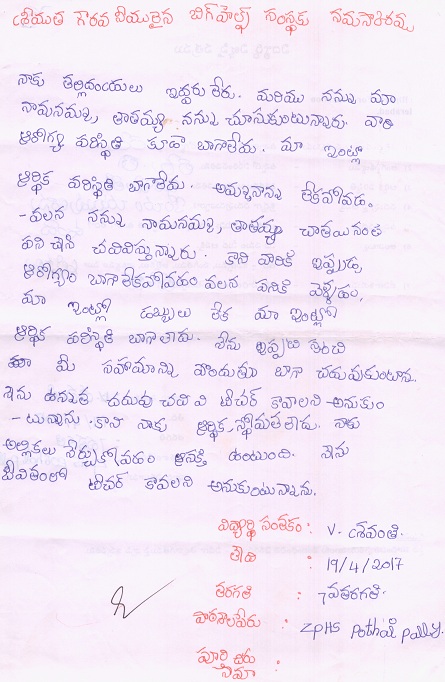 శ్రీయుత గౌరవనీయులైన బిగ్‌హెల్ప్ సంస్థకు నమస్కారము
నాకు తల్లిదండ్రులు ఇద్దరు లేరు. మరియు నన్ను మా
నానమ్మ, తాతయ్య నన్ను చూసుకుంటున్నారు. వారి
ఆరోగ్య పరిస్థితి కూడా బాగాలేదు. మా ఇంట్లో
ఆర్థిక పరిస్థితి బాగాలేదు. అమ్మనాన్న లేకపోవడం
-వలన నన్ను నానమ్మ, తాతయ్య చాతయినంత
పని చేసి చదివిస్తున్నారు. కాని వారికి ఇప్పుడు,
ఆరోగ్యం బాగాలేకపోవడం వలన పనికి వెళ్ళడం,
మా ఇంట్లో డబ్బులు లేక మా ఇంట్లో
ఆర్థిక పరిస్థితి బాగాలేదు. నేను ఇప్పటి నుంచి
మీ సహాయాన్ని పొందుతూ బాగా చదువుకుంటాను.
నేను ఉన్నత చదువు చదివి టీచర్ కావాలని అనుకుం
-టున్నాను. కాని నాకు ఆర్థిక స్థోమతలేదు. నాకు
అల్లికలు నేర్చుకోవడం ఆసక్తి ఉంటుంది. నేను
జీవితంలో టీచర్ కావాలని అనుకుంటున్నాను.
విద్యార్థి సంతకం : V. శ్రావంతి
తేది : 19/4/2017
తరగతి : 7వతరగతి.
పాఠశాలపేరు : ZPHS Pothai Pally.
పూర్తి చిరు
నామా :